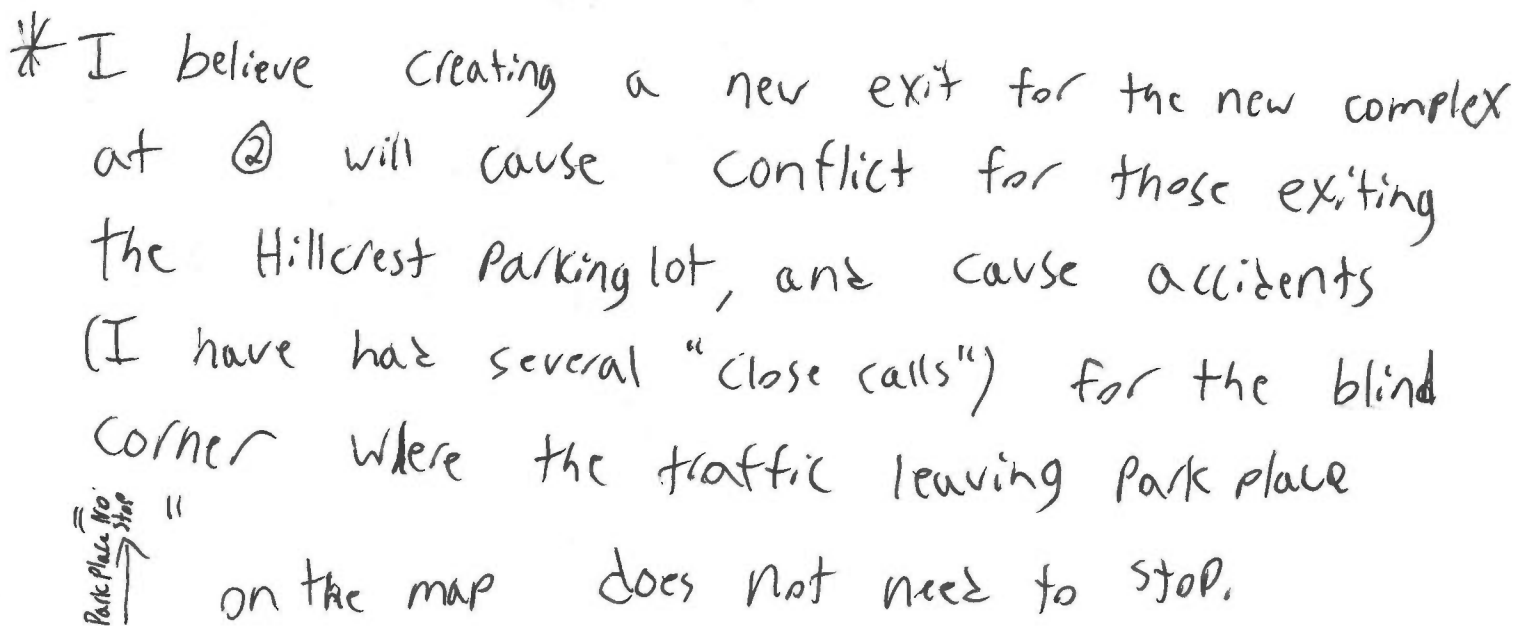 * I believe creating a new exit for the new complex
at ② will cause conflict for those exiting
the Hillcrest Parking lot, and cause accidents
(I have had several "close calls") for the blind
corner where the traffic leaving Park place
"Park Place No Stop →" on the map does not need to stop.